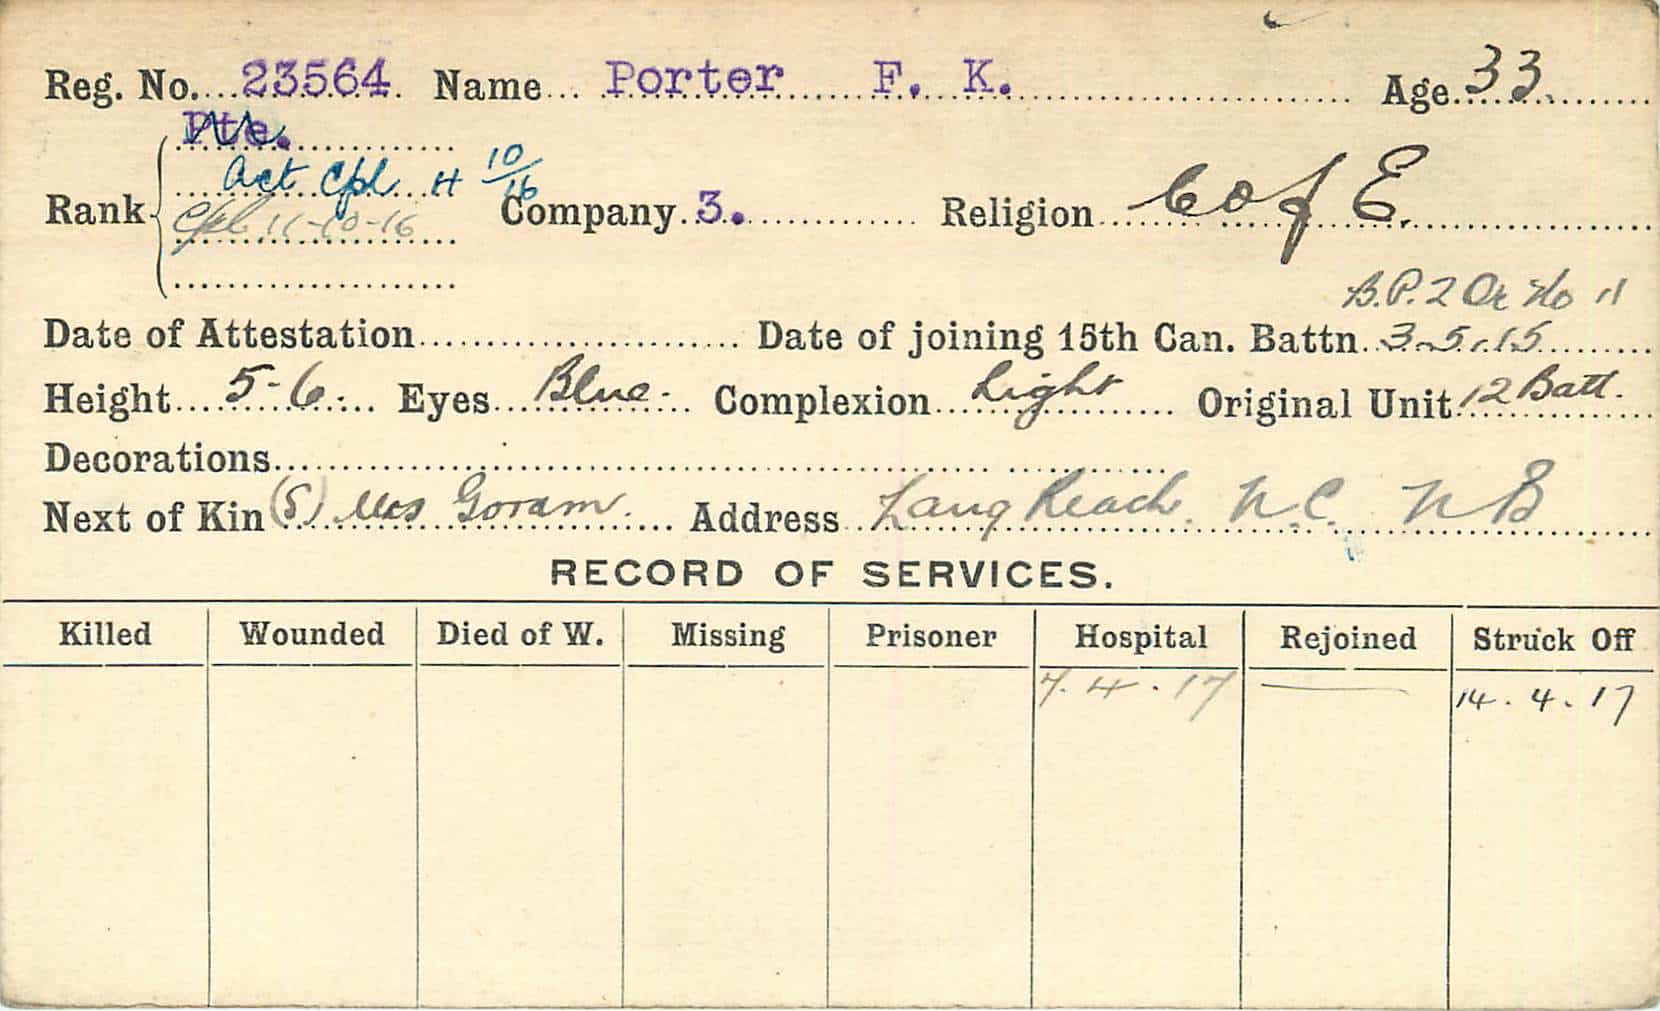 Reg. No. 23564 Name Porter F. K. Age 33
Pte.
Act Cpl 11 10/16
Rank Cpl 11-10-16 Company 3. Religion C of E.
B.P. 2 Or No 11
Date of Attestation Date of joining 15th Can. Battn. 3.5.15
Height 5-6 Eyes Blue Complexion Light Original Unit 12 Batt.
Decorations
Next of Kin (S) Mrs Goram Address Lang Reach N.C. N B
RECORD OF SERVICES.
Killed Wounded Died of W. Missing Prisoner Hospital Rejoined Struck Off
7.4.17 — 14.4.17